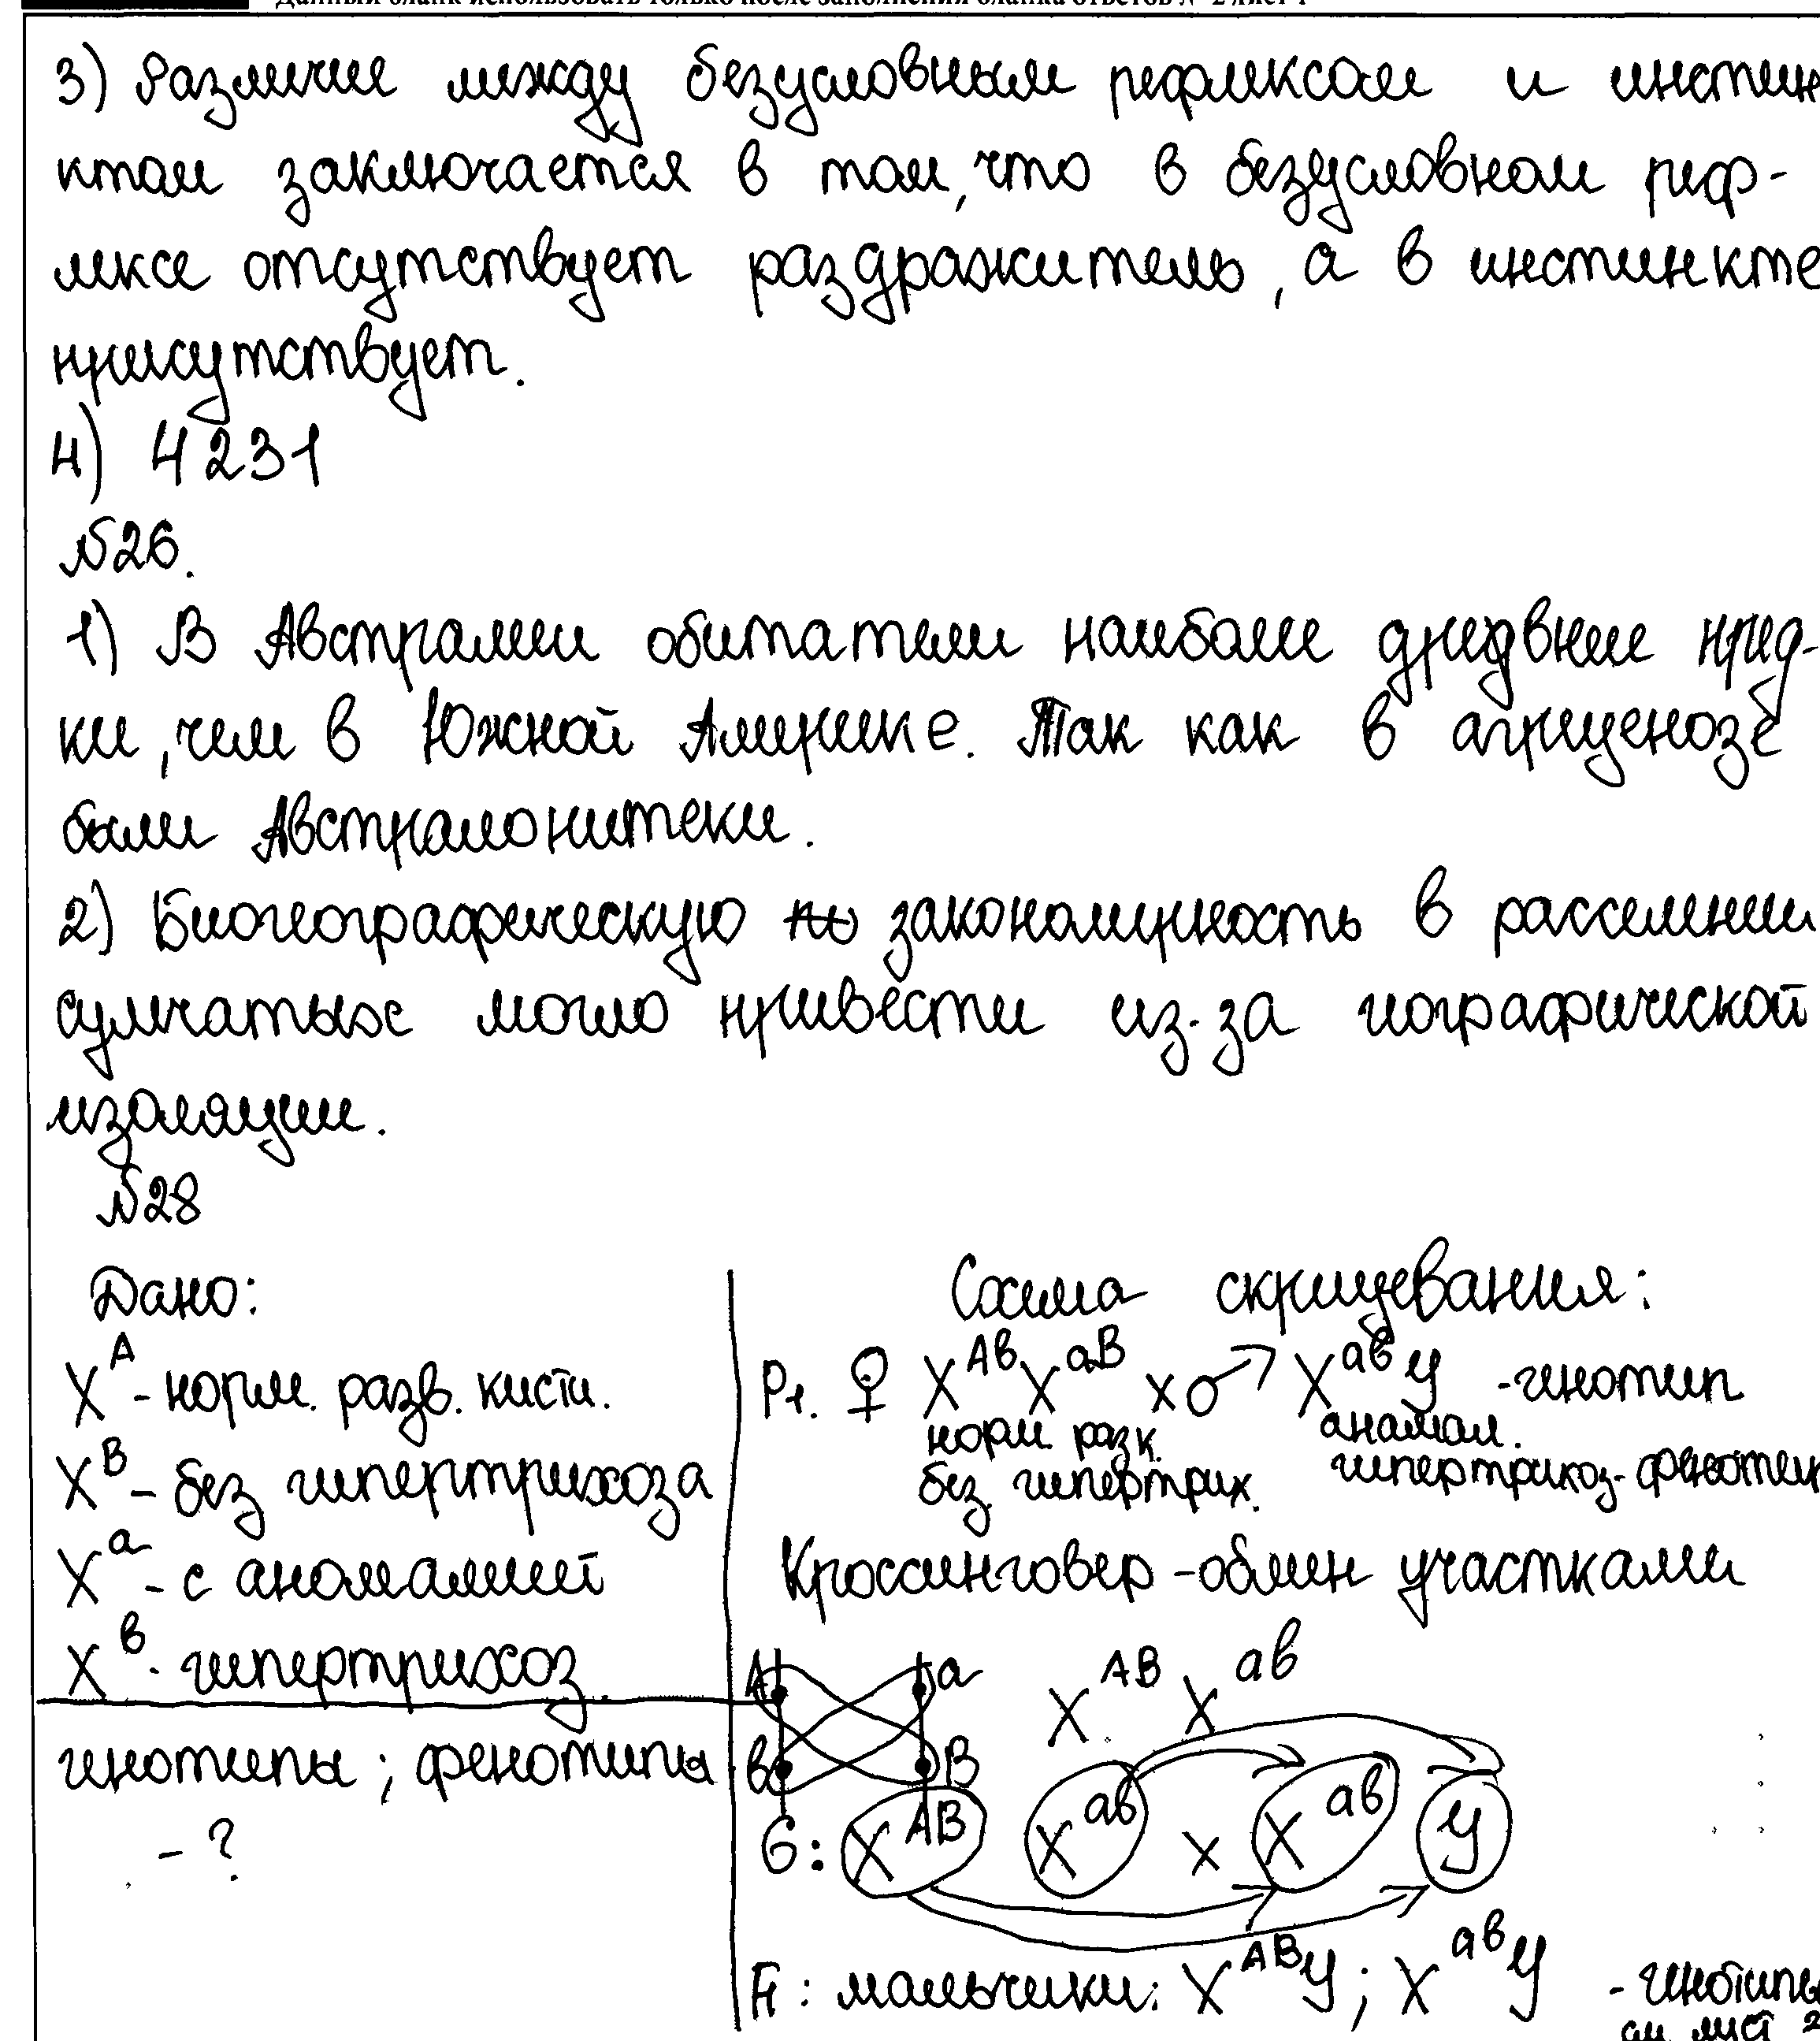 Данный бланк использовать только после заполнения бланка ответов № 2 лист 1
3) Различие между безусловным рефлексом и инстин
ктом заключается в том, что в безусловном реф-
лексе отсутствует раздражитель, а в инстинкте
присутствует.
4) 4231
№26.
1) В Австралии обитатели наиболее древние пред-
ки, чем в Южной Америке. Так как в агриценозе
были Австралопитеки.
2) Биогеографическую закономерность в расселении
сумчатых могло привести из-за географической
изоляции.
№28
Дано:
X^A - норм. разв. кисти.
X^B - без гипертрихоза
X^a - с аномалией
X^в - гипертрихоз.
генотипы ; фенотипы
- ?
Схема скрещевания:
P1. ♀ X^Aв X^aB x ♂ X^aв У - генотип
норм. разк. анамал.
без гипертрих. гипертрихоз - фенотип
Кроссинговер - обмен участками
A a X^AB X^aв
в B
G: X^AB X^aв x X^aв У
F1: мальчики: X^AB У ; X^aв У - генотипы
см. лист 2